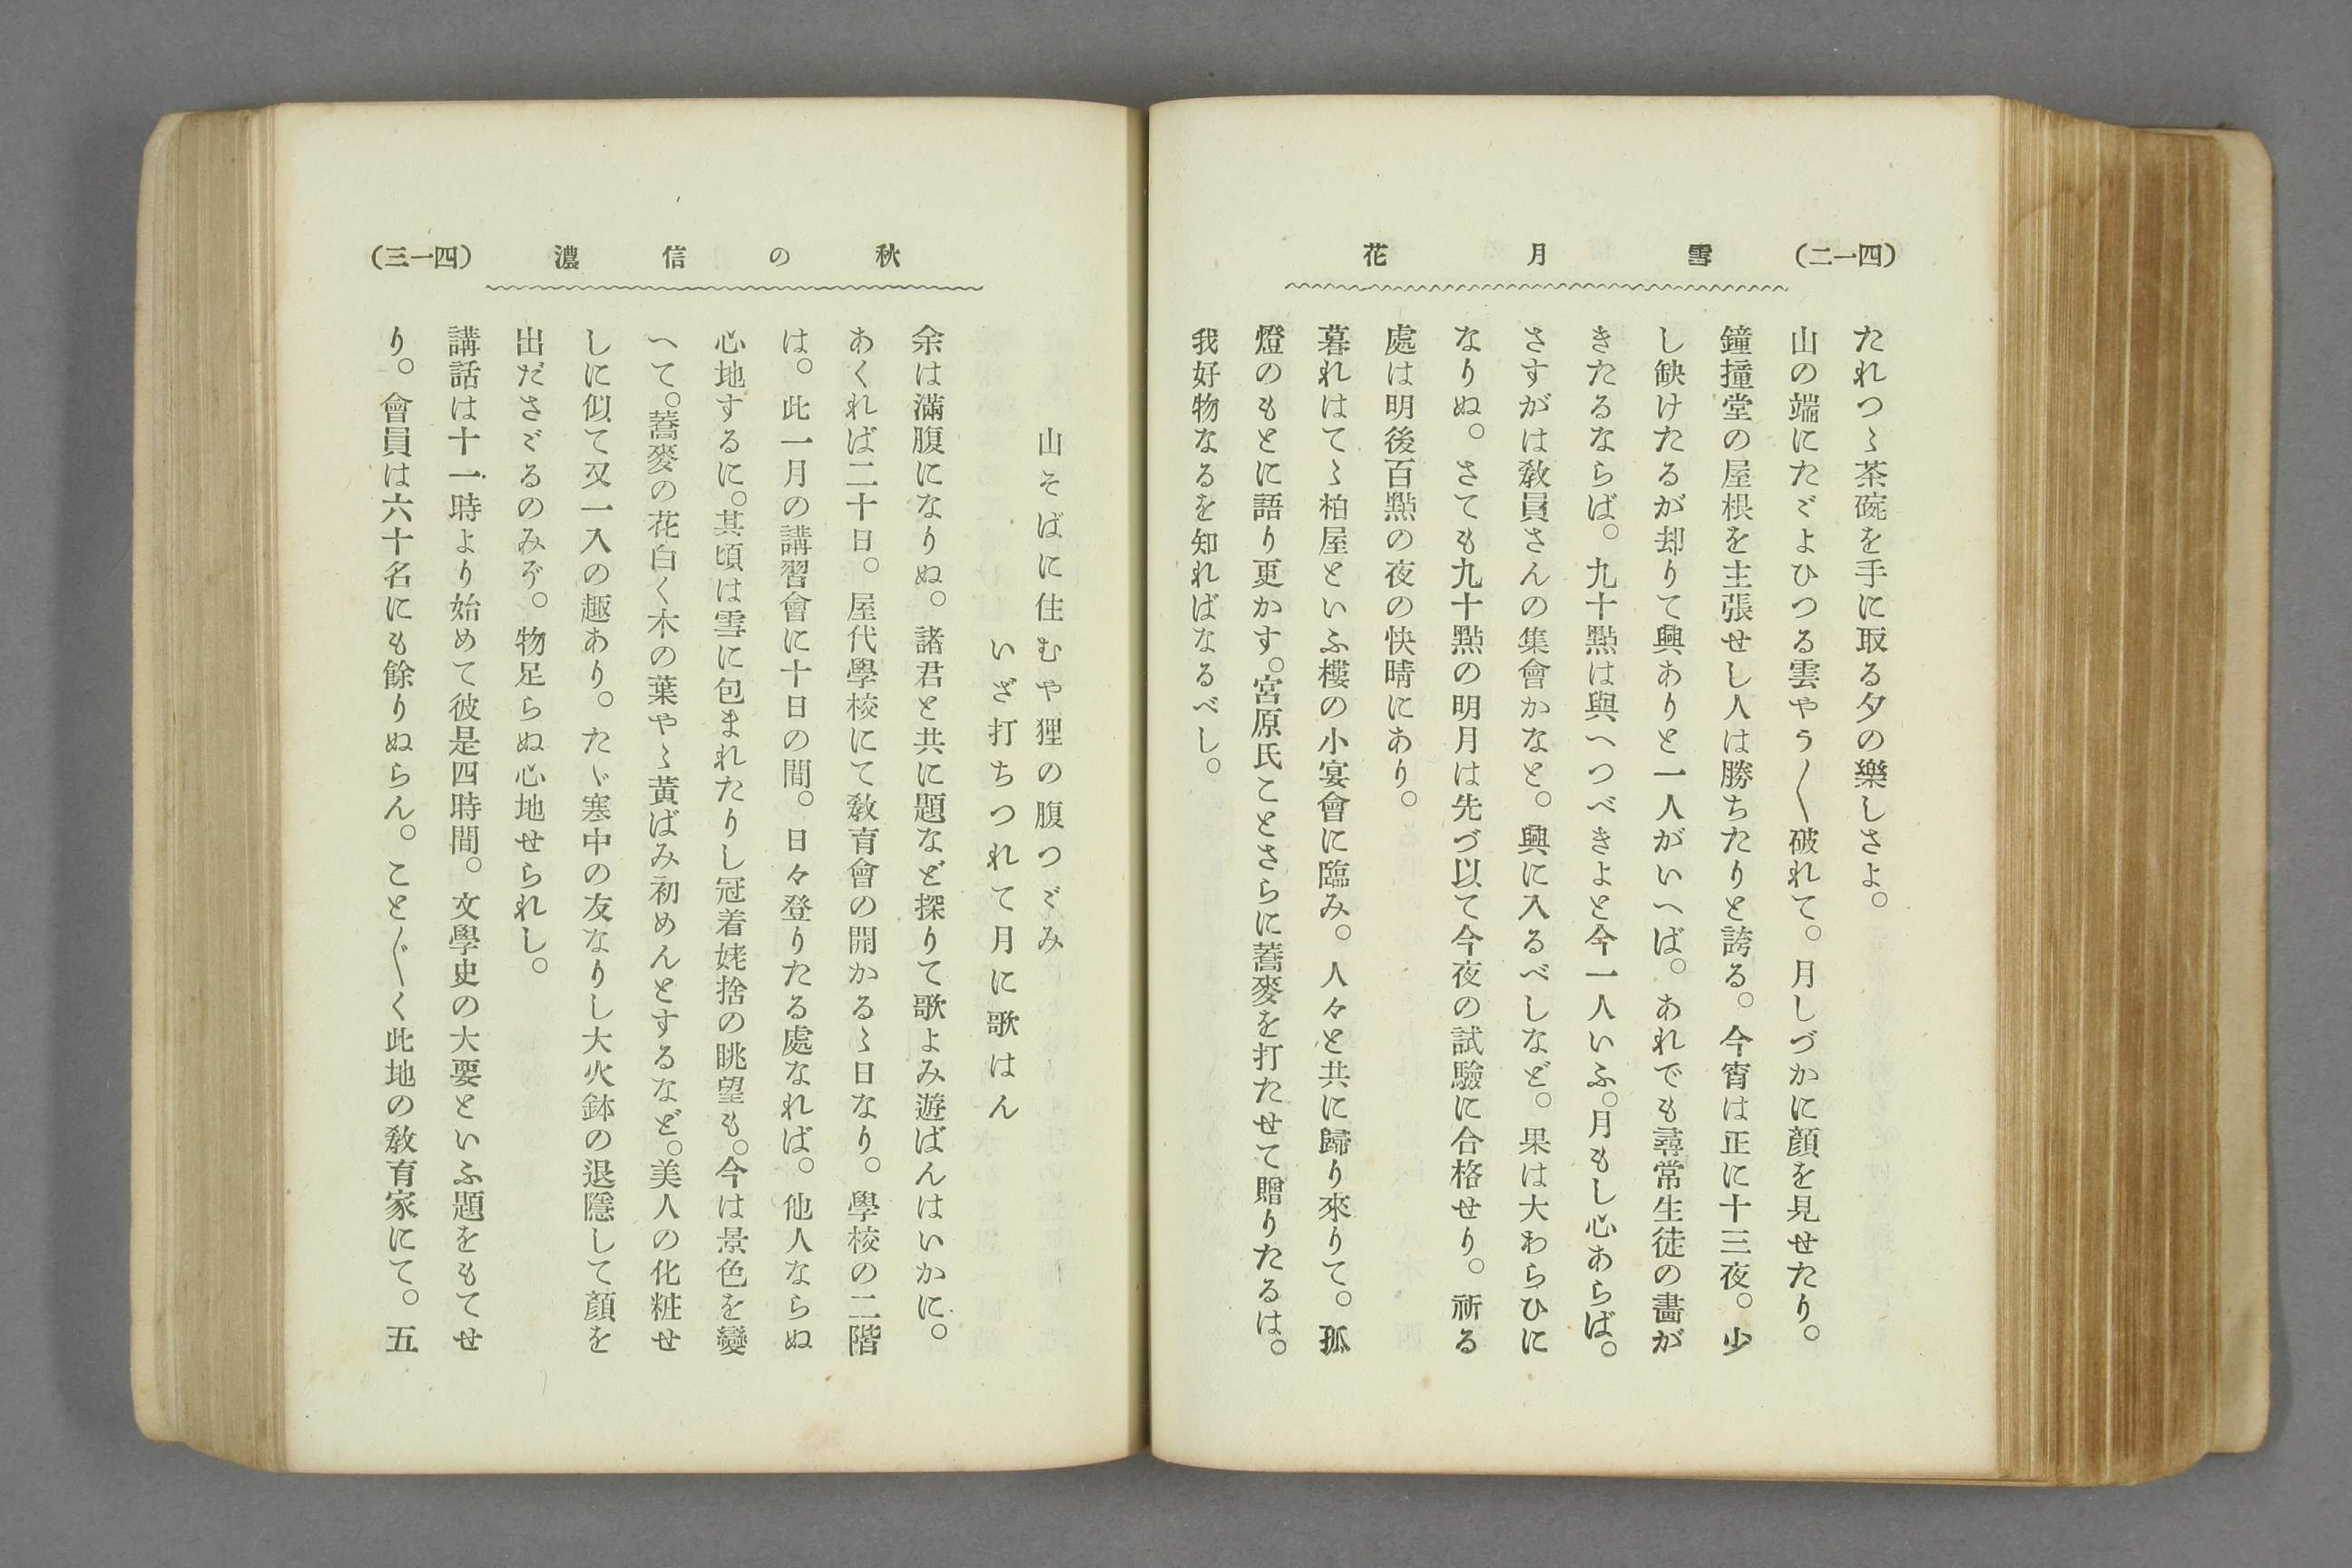 (四一二) 雪月花
たれつゝ茶碗を手に取る夕の樂しさよ。
山の端にたゞよひつる雲やう〱破れて。月しづかに顏を見せたり。
鐘撞堂の屋根を主張せし人は勝ちたりと誇る。今宵は正に十三夜。少
し缺けたるが却りて興ありと一人がいへば。あれでも尋常生徒の畵が
きたるならば。九十點は與へつべきよと今一人いふ。月もし心あらば。
さすがは敎員さんの集會かなと。興に入るべしなど。果は大わらひに
なりぬ。さても九十點の明月は先づ以て今夜の試驗に合格せり。祈る
處は明後百點の夜の快晴にあり。
暮れはてゝ柏屋といふ樓の小宴會に臨み。人々と共に歸り來りて。孤
燈のもとに語り更かす。宮原氏ことさらに蕎麥を打たせて贈りたるは。
我好物なるを知ればなるべし。
秋の信濃 (四一三)
山そばに住むや狸の腹つゞみ
いざ打ちつれて月に歌はん
余は滿腹になりぬ。諸君と共に題など探りて歌よみ遊ばんはいかに。
あくれば二十日。屋代學校にて敎育會の開かるゝ日なり。學校の二階
は。此一月の講習會に十日の間。日々登りたる處なれば。他人ならぬ
心地するに。其頃は雪に包まれたりし冠着姥捨の眺望も。今は景色を變
へて。蕎麥の花白く木の葉やゝ黃ばみ初めんとするなど。美人の化粧せ
しに似て又一入の趣あり。たゞ寒中の友なりし大火鉢の退隱して顏を
出ださゞるのみぞ。物足らぬ心地せられし。
講話は十一時より始めて彼是四時間。文學史の大要といふ題をもてせ
り。會員は六十名にも餘りぬらん。こと〲く此地の敎育家にて。五